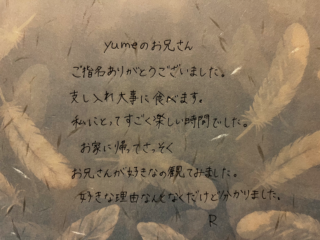 yumeのお兄さん
ご指名ありがとうございました。
差し入れ大事に食べます。
私にとってすごく楽しい時間でした。
お家に帰ってさっそく
お兄さんが好きなの観てみました。
好きな理由なんとなくだけど分かりました。
R